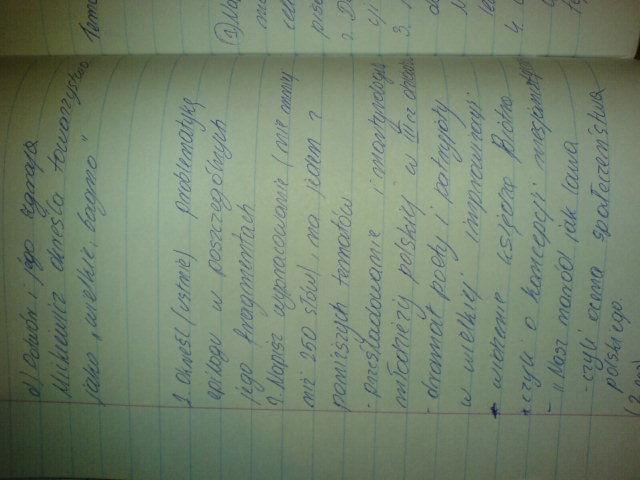 Tema
① Na
2. D
4)
3.
4.
d) Doktór i jego
Mickiewicz określa towarzystwo
jako „wielkie bagno"
1. Określ (ustnie) problematykę
epilogu w poszczególnych
jego fragmentach
2. Napisz wypracowanie (nie mniej
niż 250 słów), na jeden z
poniższych tematów
- prześladowanie i martyrologia
młodzieży polskiej w III cz
- dramat poety i patrioty
w wielkiej improwizacji
- widzenie księdza Piotra
czyli o koncepcji
- „Nasz naród jak lawa
- czyli ocena społeczeństwa
polskiego.